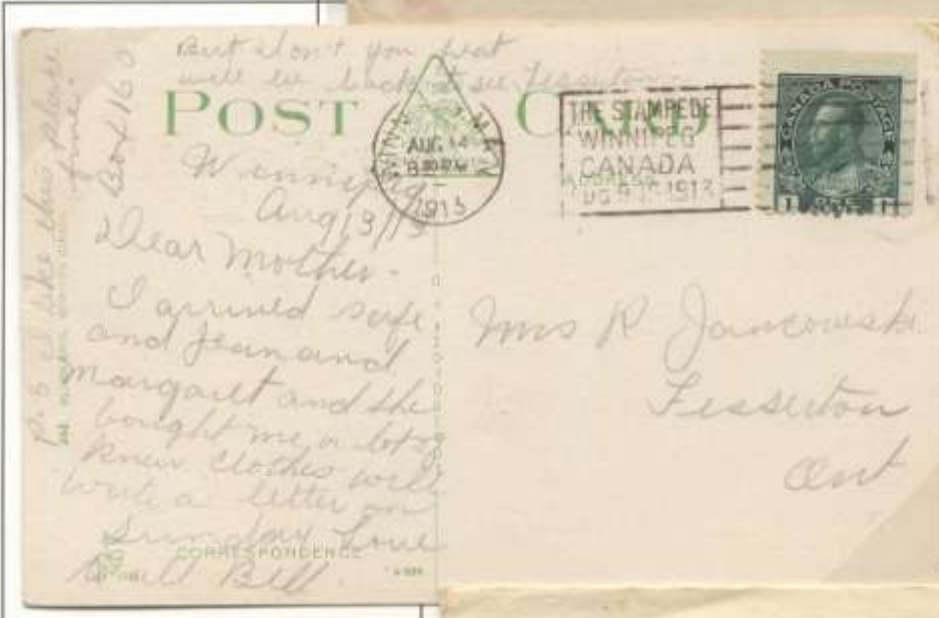 But don't you fret
will be back to see Fesserton
POST CARD
WINNIPEG MAN
AUG 14
1913
THE STAMPEDE
WINNIPEG
CANADA
1913
CANADA POSTAGE
Winnipeg
Aug 13/13
Dear Mother-
I arrived safe
and Jean and
Margaret and she
bought me a lot of
knew clothes will
write a letter on
Sunday Love
Bell
CORRESPONDENCE
P.S. I like this place
fine.
Box 160
Mrs R Jancowski
Fesserton
Ont